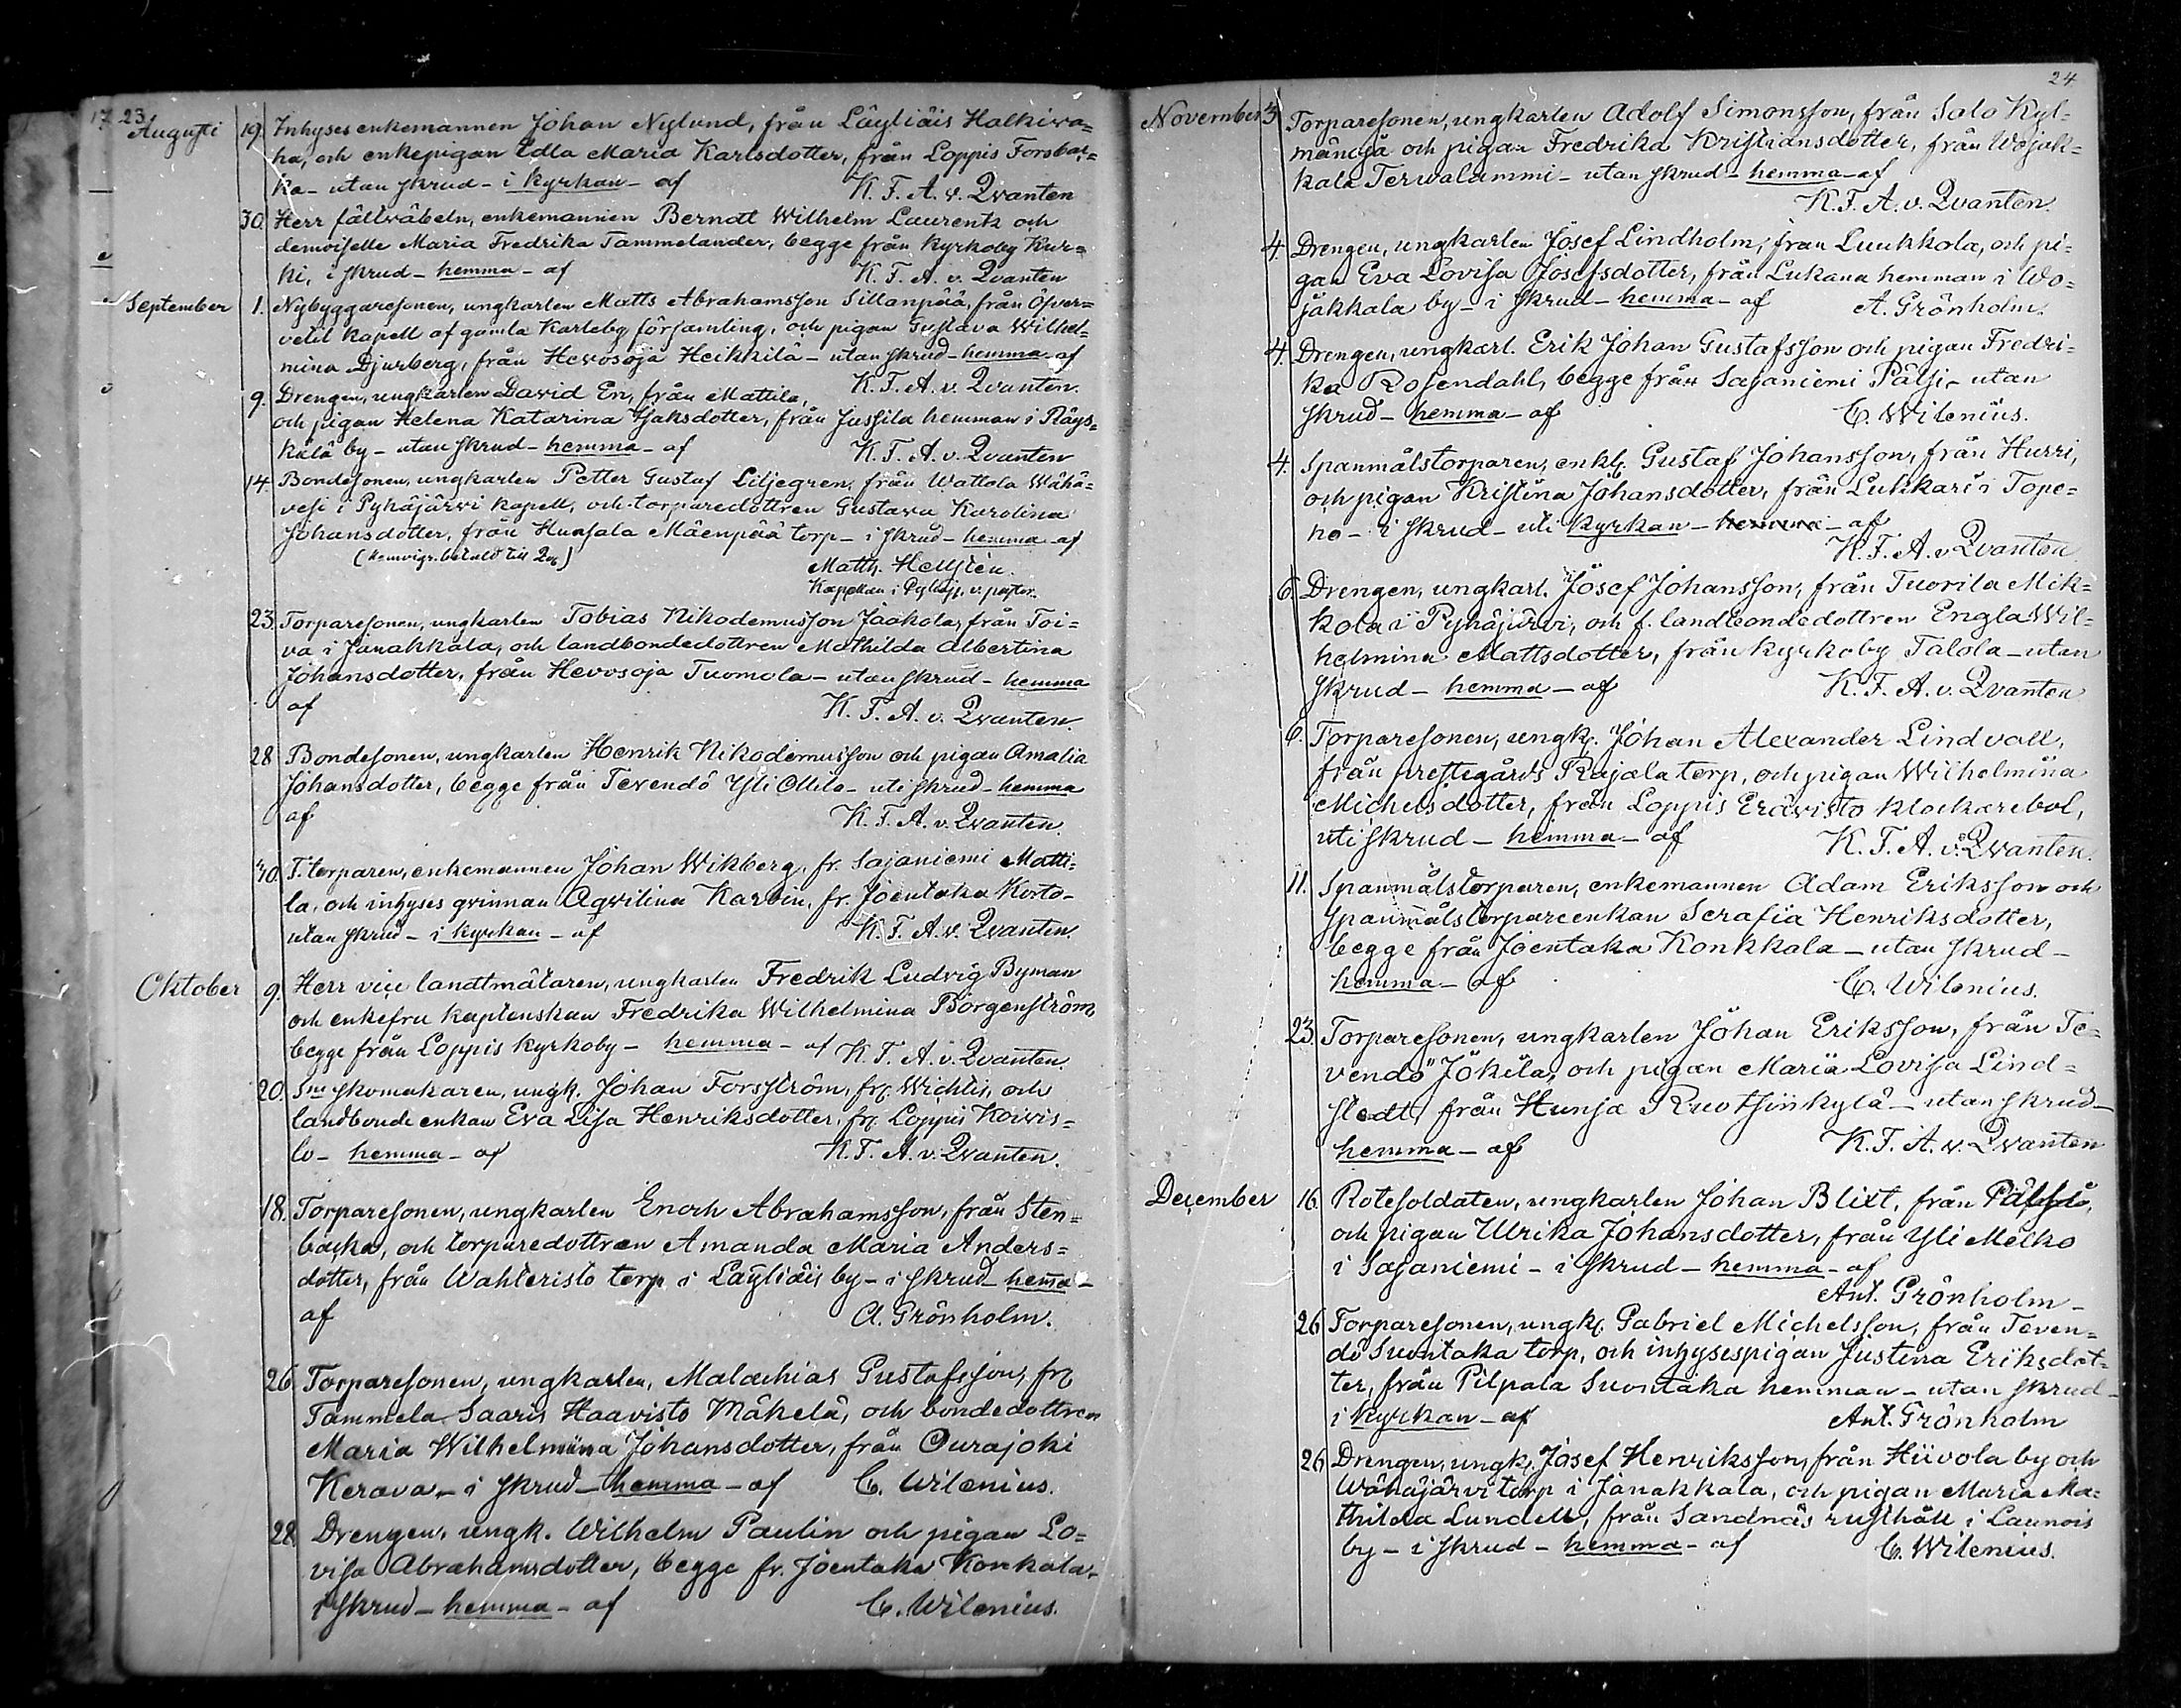 23.
Augusti 19. Inhyses enkemannen Johan Nylund, från Läyliäis Halkiva=
ha, och enkepigan Edla Maria Karlsdotter, från Loppis Forsbac=
ka - utan skrud - i kyrkan - af K. F. A. v. Qvanten
30. Herr fältväbeln, enkemannen Berndt Wilhelm Laurentz och
demoiselle Maria Fredrika Tammelander, begge från Kyrkoby Kur=
ki, i skrud - hemma - af K. F. A. v. Qvanten
September 1. Nybyggaresonen, ungkarlen Matts Abrahamsson Sillanpää, från Öfver=
vetil Kapell af gamla Karleby församling, och pigan Gustava Wilhel=
mina Djurberg, från Hevosoja Heikkilä - utan skrud - hemma - af
K. F. A. v. Qvanten.
9. Drengen, ungkarlen David En, från Mattila,
och pigan Helena Katarina Isaksdotter, från Jussila hemman i Räys=
kälä by - utan skrud - hemma - af K. F. A. v. Qvanten
14. Bondesonen, ungkarlen Petter Gustaf Liljegren, från Wattola Wähä=
vesi i Pyhäjärvi kapell, och torparedottren Gustava Karolina
Johansdotter, från Hunsala Mäenpää torp - i skrud - hemma - af
(hemvigs. betald till
Matth.
Kapellan i Pyhäj. v. pastor.
23. Torparesonen, ungkarlen Tobias Nikodemusson Jaakola, från Toi=
va i Janakkala, och landbondedottren Mathilda Albertina
Johansdotter, från Hevosoja Tuomola - utan skrud - hemma
af K. F. A. v. Qvanten.
28 Bondesonen, ungkarlen Henrik Nikodemusson och pigan Amalia
Johansdotter, begge från Tevendö Yli Ollila - uti skrud - hemma
af K. F. A. v. Qvanten.
30. T. torparen, enkemannen Johan Wikberg, fr. Sajaniemi Matti=
la, och inhyses qvinnan Aqvilina Karvin, fr. Joentaka Korto -
utan skrud - i kyrkan - af K. F. A. v. Qvanten.
Oktober 9. Herr vice landtmätaren, ungkarlen Fredrik Ludvig Byman
och enkefru kaptenskan Fredrika Wilhelmina Borgenström,
begge från Loppis kyrkoby - hemma - af K. F. A. v. Qvanten.
20. Sne skomakaren, ungk. Johan Forsström, fr. Wichtis, och
landbonde enkan Eva Lisa Henriksdotter, fr. Loppis Koivis=
to - hemma - af K. F. A. v. Qvanten.
18. Torparesonen, ungkarlen Enoch Abrahamsson, från Sten=
backa, och torparedottren Amanda Maria Anders=
dotter, från Wahteristo torp i Läyliäis by - i skrud - hemma -
af A. Grönholm.
26 Torparesonen, ungkarlen, Malachias Gustafsson, fr.
Tammela Saaris Haavisto Mäkelä, och bondedottren
Maria Wilhelmina Johansdotter, från Ourajoki
Kerava - i skrud - hemma - af C. Wilenius.
28. Drengen, ungk. Wilhelm Paulin och pigan Lo=
visa Abrahamsdotter, begge fr. Joentaka Konkala -
i skrud - hemma - af C. Wilenius.
24
November 3 Torparesonen, ungkarlen Adolf Simonsson, från Salo Kyl=
mänoja och pigan Fredrika Kristiansdotter, från Wojak=
kala Terwalammi - utan skrud - hemma - af
K. F. A. v. Qvanten.
4. Drengen, ungkarlen Josef Lindholm, från Luukkola, och pi=
gan Eva Lovisa Josefsdotter, från Lukana hemman i Wo=
jakkala by - i skrud - hemma - af A. Grönholm.
4. Drengen, ungkarl. Erik Johan Gustafsson och pigan Fredri=
ka Rosendahl, begge från Sajaniemi Pälsi - utan
skrud - hemma - af C. Wilenius.
4. Spanmålstorparen, enkl. Gustaf Johansson, från Hurri,
och pigan Kristina Johansdotter, från Lukkari i Tope=
no - i skrud - uti kyrkan - hemma - af
K. F. A. v Qvanten
6. Drengen, ungkarl. Josef Johansson, från Tuorila Mik=
kola i Pyhäjärvi, och f. landbondedottren Engla Wil=
helmina Mattsdotter, från kyrkoby Talola - utan
skrud - hemma - af K. F. A. v. Qvanten
6. Torparesonen, ungk. Johan Alexander Lindvall,
från prestegårds Rajala torp, och pigan Wilhelmina
Michelsdotter, från Loppis Erävisto klockarebol,
uti skrud - hemma - af K. F. A. v. Qvanten.
11. Spanmålstorparen, enkemannen Adam Eriksson och
spanmålstorpareenkan Serafia Henriksdotter,
begge från Joentaka Konkkala - utan skrud -
hemma - af C. Wilenius.
23. Torparesonen, ungkarlen Johan Eriksson, från Te=
vendö Jokila, och pigan Maria Lovisa Lind=
stedt, från Hunsa Ruotsinkylä - utan skrud -
hemma - af K. F. A. v. Qvanten
December 16. Rotesoldaten, ungkarlen Johan Blixt, från
och pigan Ulrika Johansdotter, från Yli Melko
i Sajaniemi - i skrud - hemma - af
Ant. Grönholm -
26 Torparesonen, ungk. Gabriel Michelsson, från Teven=
dö Suontaka torp, och inhysespigan Justina Eriksdot=
ter, från Pilpala Suontaka hemman - utan skrud -
i kyrkan - af Ant. Grönholm
26 Drengen, ungk. Josef Henriksson, från Hiivola by och
Wähäjärvi torp i Janakkala, och pigan Maria Ma=
thilda Lundell, från Sandnäs rusthåll i Launois
by - i skrud - hemma - af C. Wilenius.